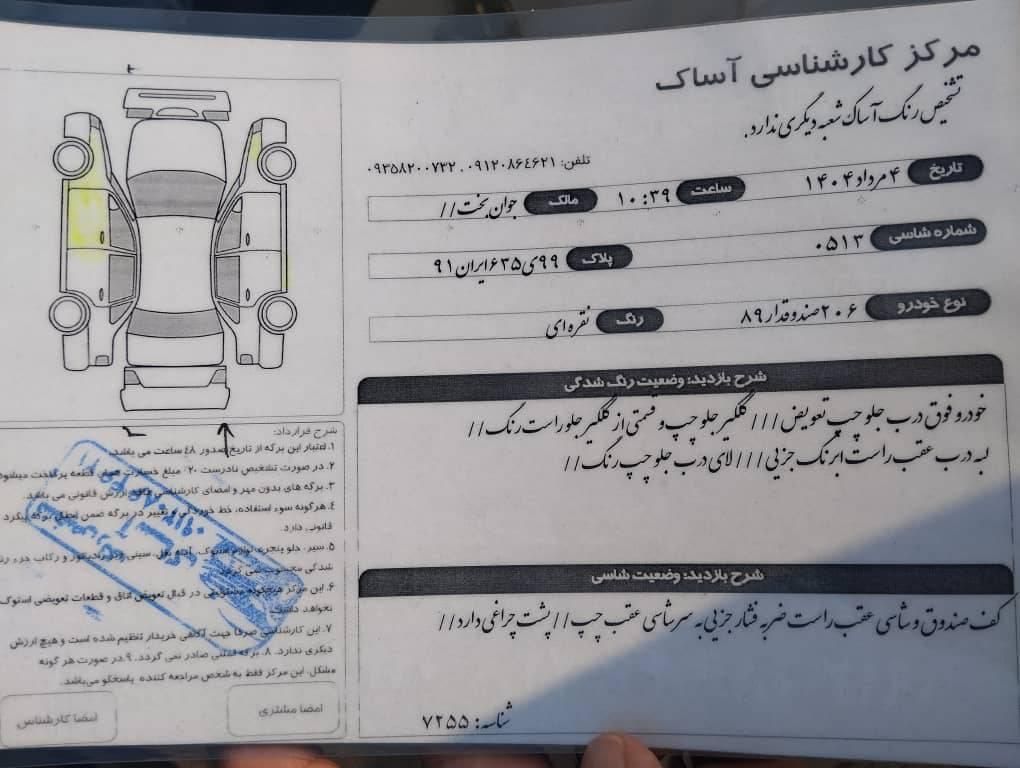 مرکز کارشناسی آساک
تشخیص رنگ آساک شعبه دیگری ندارد.
تلفن: ۰۹۱۲۰۸۶۴۶۲۱ . ۰۹۳۵۸۲۰۰۷۳۲
تاریخ ۴ مرداد ۱۴۰۴ ساعت ۱۰:۳۹ مالک جوان بخت //
شماره شاسی ۰۵۱۳ پلاک ۹۹ی۶۳۵ایران۹۱
نوع خودرو ۲۰۶صندوقدار۸۹ رنگ نقره ای
شرح بازدید: وضعیت رنگ شدگی
خودرو فوق درب جلو چپ تعویض /// گلگیر جلو چپ و قسمتی از گلگیر جلو راست رنگ //
لبه درب عقب راست ابرنگ جزیی /// لای درب جلو چپ رنگ //
شرح بازدید: وضعیت شاسی
کف صندوق و شاسی عقب راست ضربه فشار جزیی به سرشاسی عقب چپ // پشت چراغی دارد //
شناسه: ۷۲۵۵
شرح قرارداد:
۱. اعتبار این برگه از تاریخ صدور ۴۸ ساعت می باشد.
۲. در صورت تشخیص نادرست ۲۰٪ مبلغ خسارت همان قطعه پرداخت میشود
۳. برگه های بدون مهر و امضای کارشناسی فاقد ارزش قانونی می باشد.
۴. هرگونه سوء استفاده، خط خوردگی و تغییر در برگه ضمن ابطال برگه پیگرد
قانونی دارد.
۵. سپر، جلو پنجره، لوازم استوک، سینی و رکاب جزء رنگ
شدگی محسوب نمی گردد.
۶. این مرکز هیچگونه مسئولیتی در قبال تعویض اتاق و قطعات تعویضی استوک
نخواهد داشت.
۷. این کارشناسی صرفا جهت آگاهی خریدار تنظیم شده است و هیچ ارزش
دیگری ندارد. ۸. برگه المثنی صادر نمی گردد. ۹. در صورت هر گونه
مشکل، این مرکز فقط به شخص مراجعه کننده پاسخگو می‌باشد.
امضا مشتری
امضا کارشناس